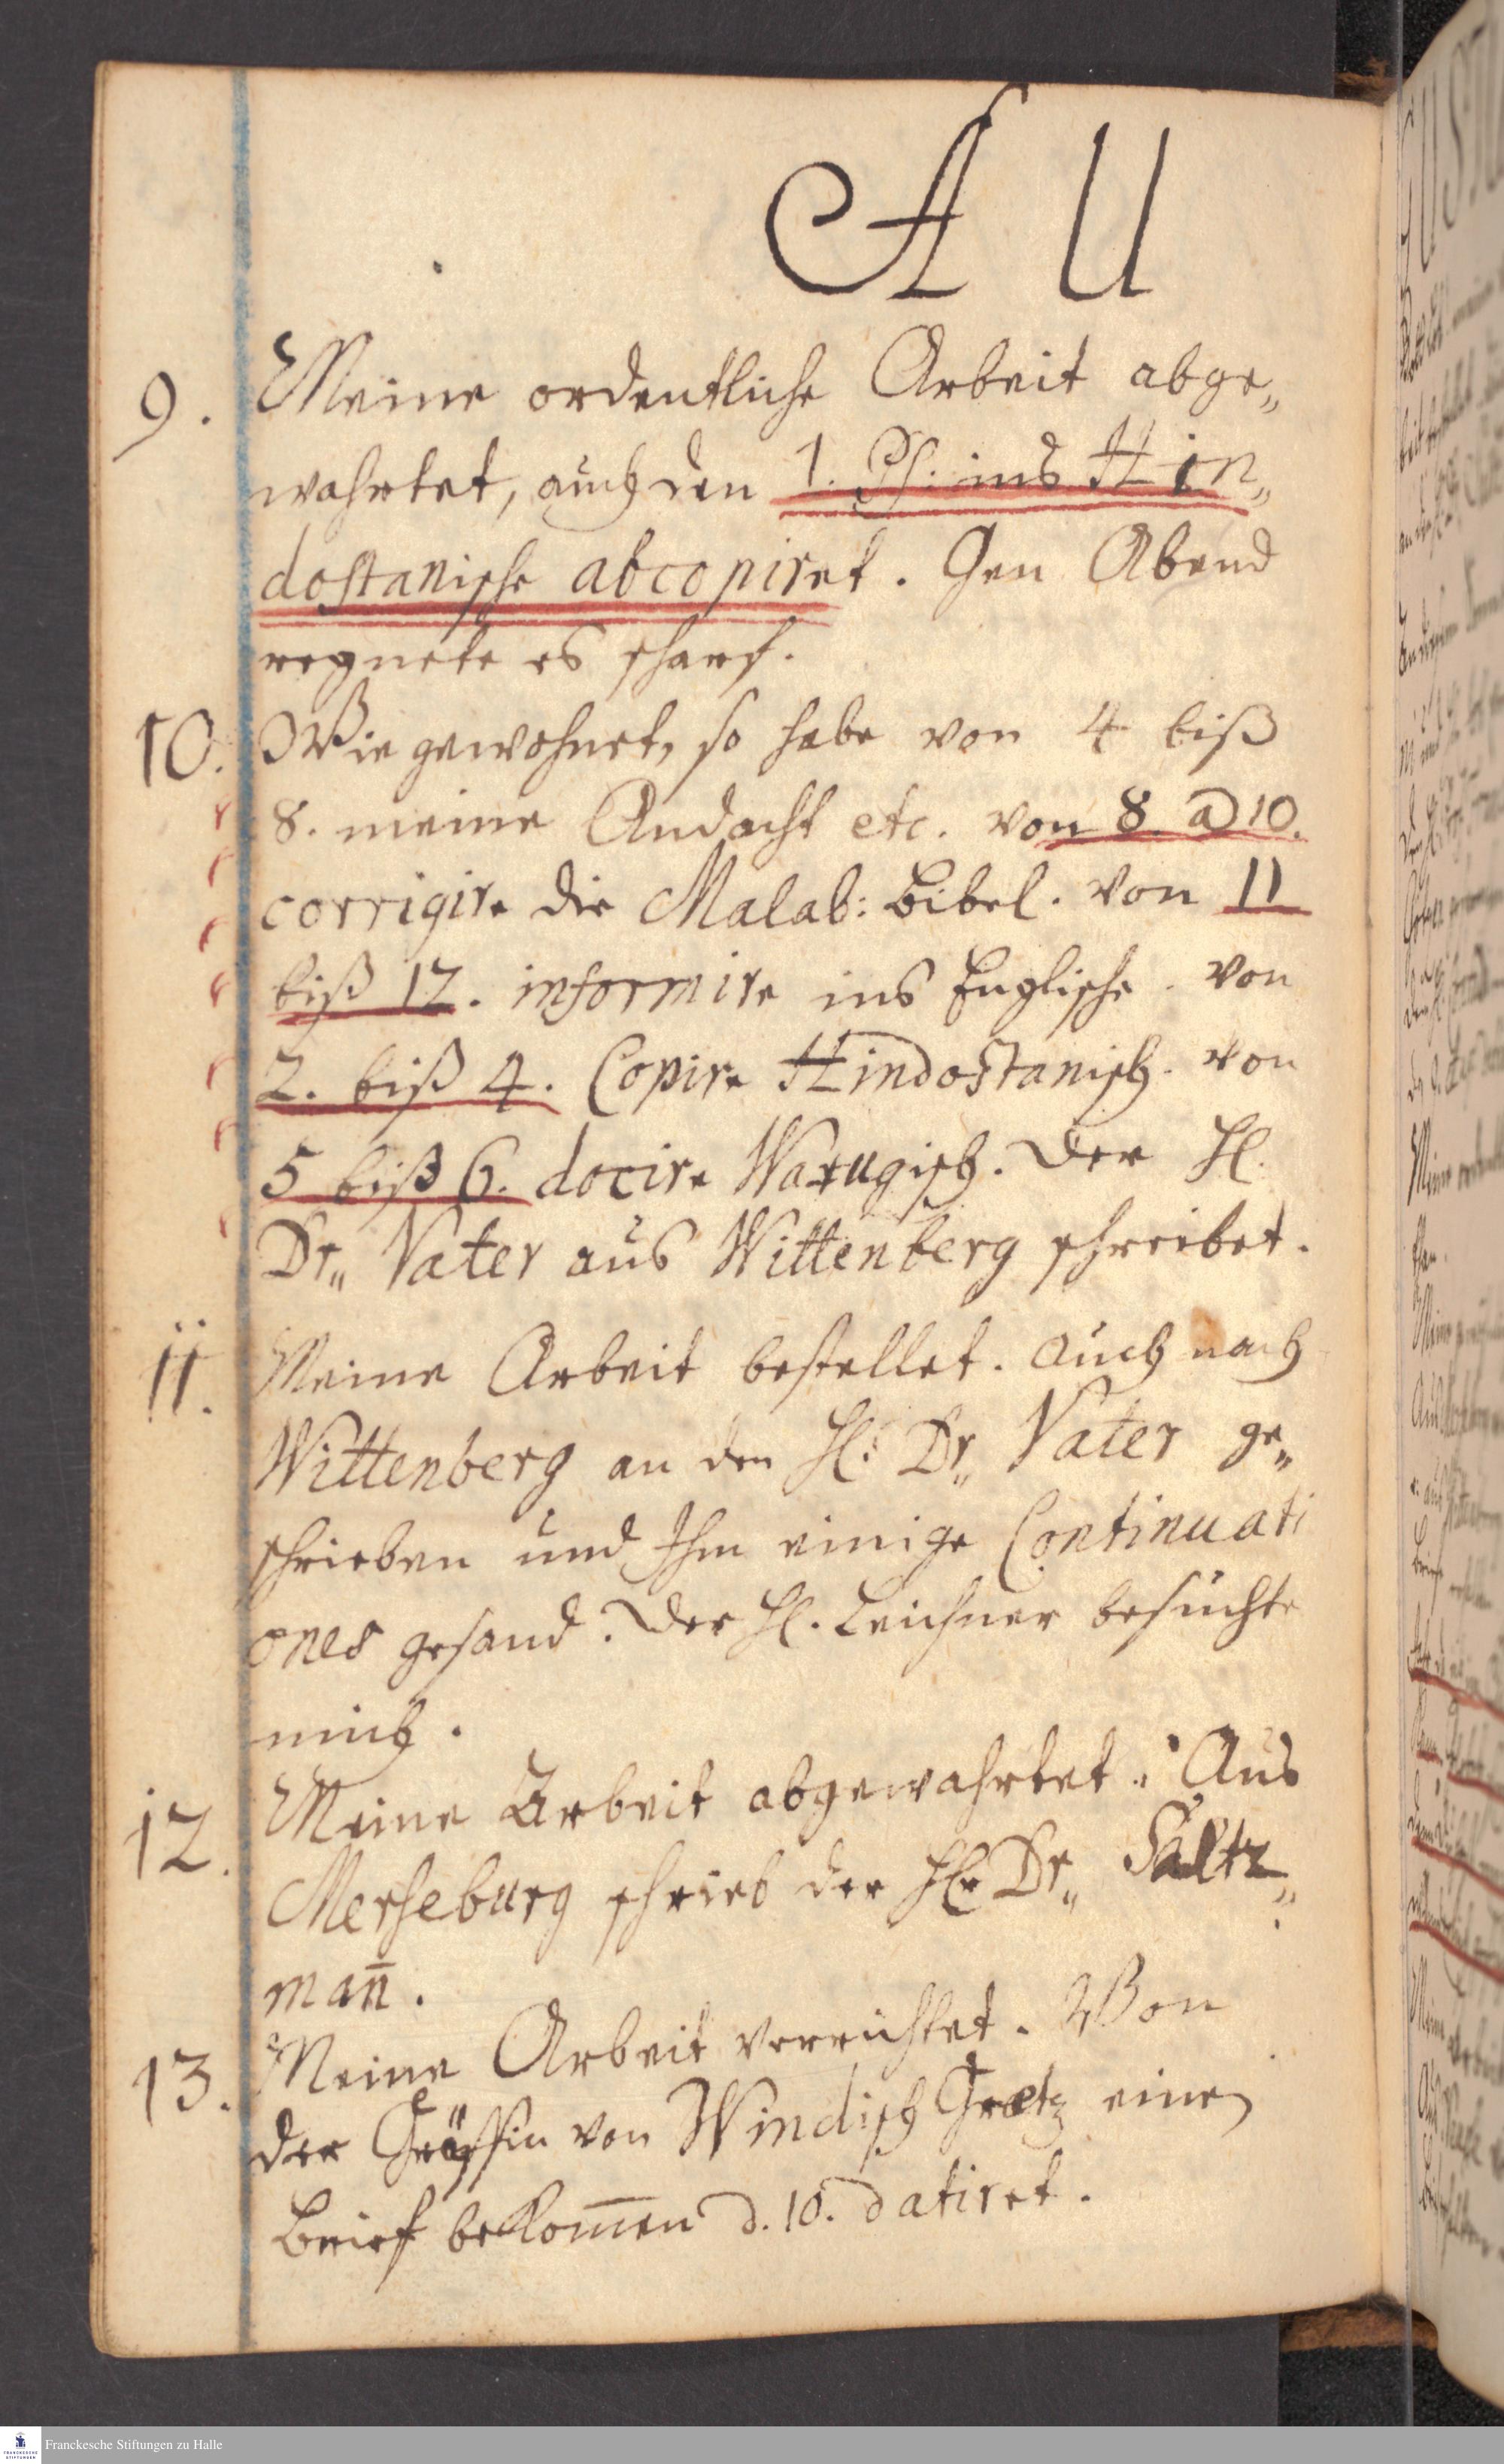 A U
9. Meine ordentliche Arbeit abge„
wahrtet, auch den 1. Ps: ins Hin„
dostanische abcopiret. Gen Abend
regnete es scharf.
10. Wie gewohnet, so habe von 4 biß
8. meine Andacht etc. von 8. a 10.
corrigire die Malab: Bibel. von 11
biß 12. informire ins Englische. von
2. biß 4. Copire Hindostanisch. von
5 biß 6. docire Warugisch. Der H.
Dr„ Vater aus Wittenberg schreibet.
11. Meine Arbeit bestellet. Auch nach
Wittenberg an den H: Dr„ Vater ge„
schrieben und Ihm einige Continuati
ones gesand. Der H. Leichner besuchte
mich.
12. Meine Arbeit abgewahrtet. Aus
Merseburg schrieb der Hr Dr„ Saltz„
man̄.
13. Meine Arbeit verrichtet. Von
der Gräffin von Windisch Graetz einen
Brief bekom̄en d. 10. datiret.
FRANCKESCHE STIFTUNGEN
Franckesche Stiftungen zu Halle